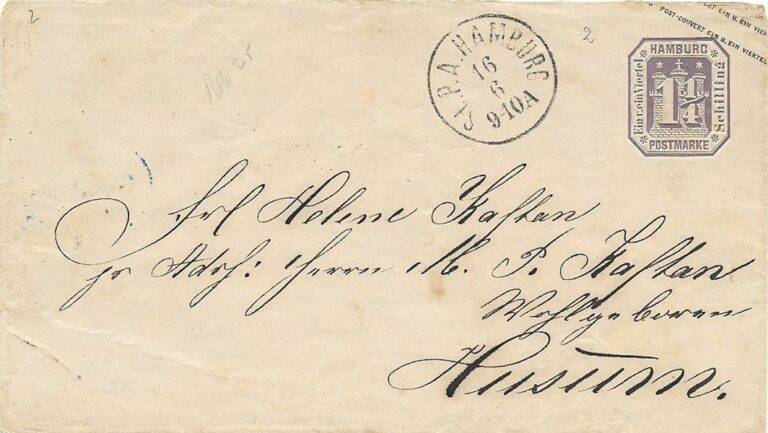 2
2
POST-COUVERT EIN U. EIN VIERTEL
HAMBURG
Ein u. ein Viertel
1 1/4
Schilling
POSTMARKE
St. P. A. HAMBURG
16
6
9-10A
Frl Helene Kaftan
pr Adrh: Herrn M. P. Kaftan
Wohlgeboren
Husum.